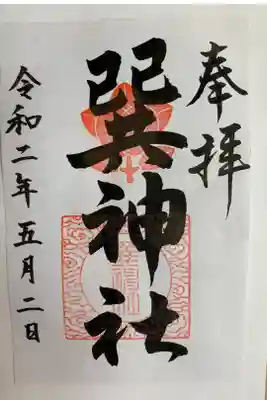 奉拝
巽神社
令和二年五月二日